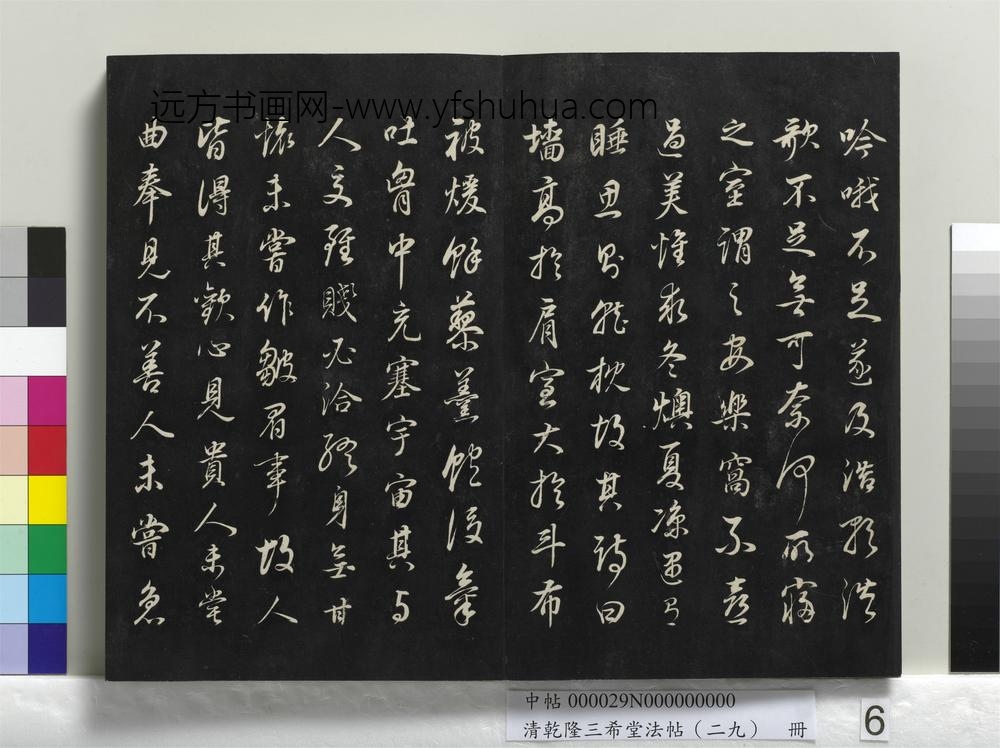 远方书画网-www.yfshuhua.com
吟哦不足遂及浩歌浩
歌不足無可奈何所寢
之室謂之安樂窩不喜
過美惟求冬燠夏凉遇有
睡思則就枕故其詩曰
墻高於肩室大於斗布
被煖餘藜羹飽後氣
吐胷中充塞宇宙其与
人交雖賤必洽終身無甘
壞未嘗作皺眉事故人
皆得其歡心見貴人未嘗
曲奉見不善人未嘗急
中帖 000029N000000000
清乾隆三希堂法帖（二九） 冊
6